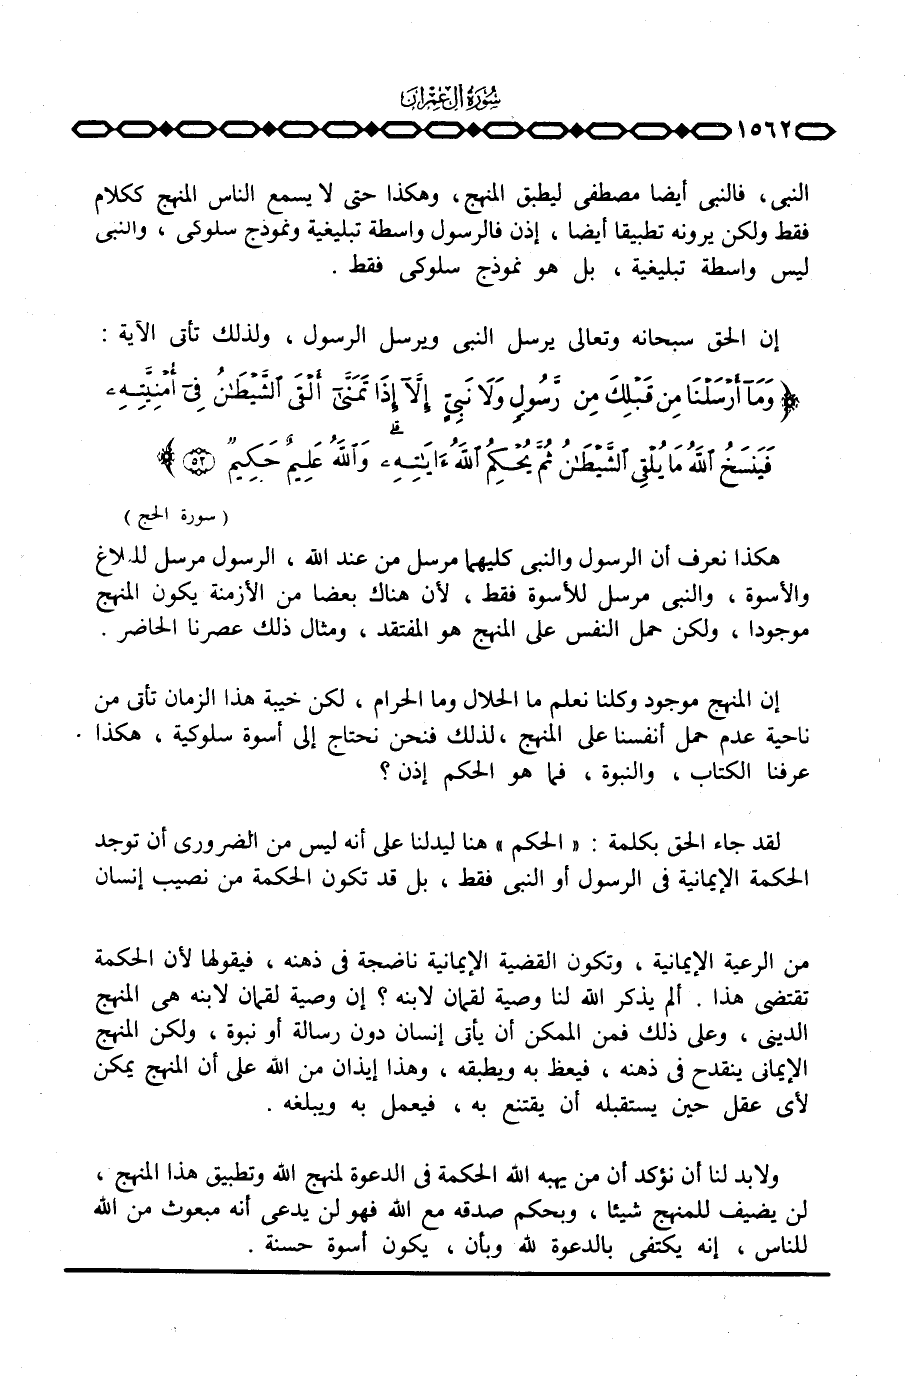 سُورَةُ آلِ عِمْرَانَ
١٥٦٢
النبى، فالنبى أيضا مصطفى ليطبق المنهج، وهكذا حتى لا يسمع الناس المنهج ككلام
فقط ولكن يرونه تطبيقا أيضا ، إذن فالرسول واسطة تبليغية ونموذج سلوكى ، والنبى
ليس واسطة تبليغية ، بل هو نموذج سلوكى فقط .
إن الحق سبحانه وتعالى يرسل النبى ويرسل الرسول ، ولذلك تأتى الآية :
﴿ وَمَآ أَرْسَلْنَا مِن قَبْلِكَ مِن رَّسُولٍ وَلَا نَبِيٍّ إِلَّآ إِذَا تَمَنَّىٰٓ أَلْقَى ٱلشَّيْطَـٰنُ فِىٓ أُمْنِيَّتِهِۦ
فَيَنسَخُ ٱللَّهُ مَا يُلْقِى ٱلشَّيْطَـٰنُ ثُمَّ يُحْكِمُ ٱللَّهُ ءَايَـٰتِهِۦ ۗ وَٱللَّهُ عَلِيمٌ حَكِيمٌ ۝٥٢ ﴾
( سورة الحج )
هكذا نعرف أن الرسول والنبى كليهما مرسل من عند الله ، الرسول مرسل للبلاغ
والأسوة ، والنبى مرسل للأسوة فقط ، لأن هناك بعضا من الأزمنة يكون المنهج
موجودا ، ولكن حمل النفس على المنهج هو المفتقد ، ومثال ذلك عصرنا الحاضر .
إن المنهج موجود وكلنا نعلم ما الحلال وما الحرام ، لكن خيبة هذا الزمان تأتى من
ناحية عدم حمل أنفسنا على المنهج ،لذلك فنحن نحتاج إلى أسوة سلوكية ، هكذا
عرفنا الكتاب ، والنبوة ، فما هو الحكم إذن ؟
لقد جاء الحق بكلمة : « الحكم » هنا ليدلنا على أنه ليس من الضرورى أن توجد
الحكمة الإيمانية فى الرسول أو النبى فقط ، بل قد تكون الحكمة من نصيب إنسان
من الرعية الإيمانية ، وتكون القضية الإيمانية ناضجة فى ذهنه ، فيقولها لأن الحكمة
تقتضى هذا . ألم يذكر الله لنا وصية لقمان لابنه ؟ إن وصية لقمان لابنه هى المنهج
الدينى ، وعلى ذلك فمن الممكن أن يأتى إنسان دون رسالة أو نبوة ، ولكن المنهج
الإيمانى ينقدح فى ذهنه ، فيعظ به ويطبقه ، وهذا إيذان من الله على أن المنهج يمكن
لأى عقل حين يستقبله أن يقتنع به ، فيعمل به ويبلغه .
ولابد لنا أن نؤكد أن من يهبه الله الحكمة فى الدعوة لمنهج الله وتطبيق هذا المنهج ،
لن يضيف للمنهج شيئا ، وبحكم صدقه مع الله فهو لن يدعى أنه مبعوث من الله
للناس ، إنه يكتفى بالدعوة لله وبأن ، يكون أسوة حسنة .